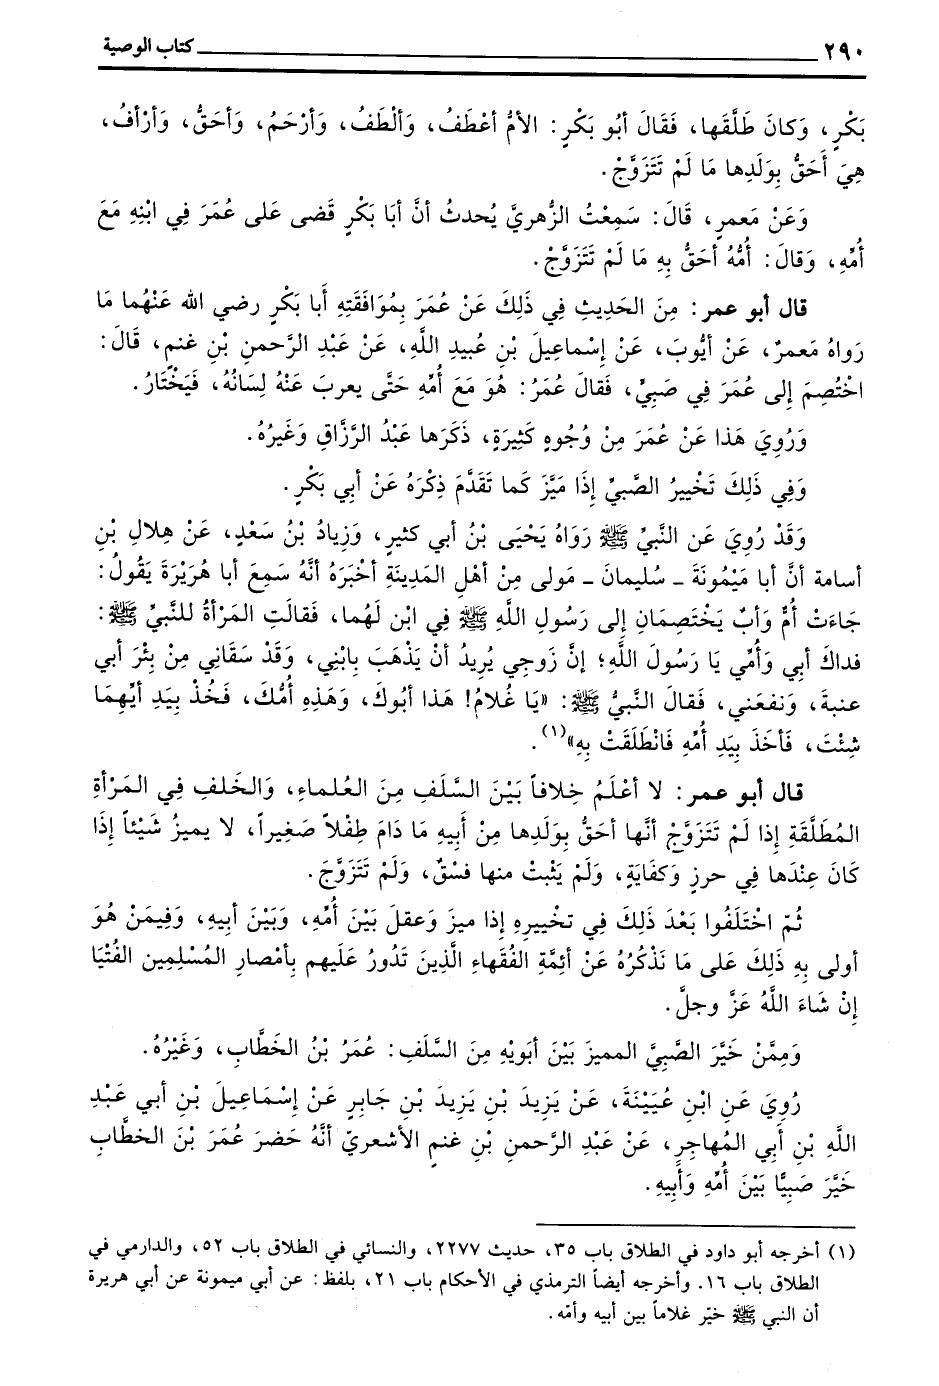 ٢٩٠ كتاب الوصية
بَكْرٍ، وَكانَ طَلَّقَها، فَقَالَ أبُو بَكْرٍ: الأمُّ أعْطَفُ، وَألْطَفُ، وَأرْحَمُ، وَأحَقُّ، وَأرْأفُ،
هِيَ أَحَقُّ بِوَلَدِها مَا لَمْ تَتَزَوَّجْ.
وَعَنْ مَعمرٍ، قَالَ: سَمِعْتُ الزُّهريَّ يُحدثُ أنَّ أبَا بَكْرٍ قَضى عَلى عُمَرَ فِي ابْنِهِ مَعَ
أُمِّهِ، وَقالَ: أُمُّهُ أحَقُّ بِهِ مَا لَمْ تَتَزَوَّجْ.
قال أبو عمر: مِنَ الحَدِيثِ فِي ذَلِكَ عَنْ عُمَرَ بِمُوَافَقَتِهِ أَبا بَكْرٍ رضي الله عَنْهُما مَا
رَوَاهُ مَعمرٌ، عَنْ أيُّوبَ، عَنْ إسْماعِيلَ بْنِ عُبيدِ اللَّهِ، عَنْ عَبْدِ الرَّحمنِ بْنِ غنمٍ، قَالَ:
اخْتُصِمَ إلى عُمَرَ فِي صَبِيٍّ، فَقالَ عُمَرُ: هُوَ مَعَ أُمِّهِ حَتَّى يعربَ عَنْهُ لِسَانُهُ، فَيَخْتَارُ.
وَرُوِيَ هَذا عَنْ عُمَرَ مِنْ وُجُوهٍ كَثِيرَةٍ، ذَكَرَها عَبْدُ الرَّزَّاقِ وَغَيرُهُ.
وَفِي ذَلِكَ تَخْييرُ الصَّبِيِّ إذَا مَيَّزَ كَما تَقَدَّمَ ذِكْرَهُ عَنْ أبي بَكْرٍ.
وَقَدْ رُوِيَ عَنِ النَّبِيِّ ﷺ رَوَاهُ يَحْيَى بْنُ أبي كثيرٍ، وَزِيادُ بْنُ سَعْدٍ، عَنْ هِلالِ بْنِ
أسامة أنَّ أبا مَيْمُونَةَ - سُليمانَ - مَولى مِنْ أهْلِ المَدِينَةِ أخْبَرَهُ أنَّهُ سَمِعَ أبا هُرَيْرَةَ يَقُولُ:
جَاءَتْ أُمٌّ وَأبٌ يَخْتَصِمَانِ إلى رَسُولِ اللَّهِ ﷺ فِي ابْنٍ لَهُما، فَقَالَتِ المَرْأةُ للنَّبِيِّ ﷺ:
فداكَ أبي وَأمِّي يَا رَسُولَ اللَّهِ؛ إنَّ زَوجِي يُرِيدُ أنْ يَذْهَبَ بِابْنِي، وَقَدْ سَقَانِي مِنْ بِئْرَ أبي
عنبةَ، وَنفعَنِي، فَقالَ النَّبيُّ ﷺ: «يَا غُلامُ! هَذا أبُوكَ، وَهَذِهِ أمُّكَ، فَخُذْ بِيَدِ أيِّهِمَا
شِئْتَ، فَأخَذَ بِيَدِ أُمِّهِ فَانْطَلَقَتْ بِهِ»(١).
قال أبو عمر: لا أعْلَمُ خِلافاً بَيْنَ السَّلَفِ مِنَ العُلماءِ، وَالخَلفِ فِي المَرْأةِ
المُطَلَّقَةِ إذا لَمْ تَتَزَوَّجْ أنَّها أحَقُّ بِوَلَدِها مِنْ أبِيهِ مَا دَامَ طِفْلاً صَغِيراً، لا يميزُ شَيْئاً إذَا
كَانَ عِنْدَها فِي حرزٍ وَكفَايَةٍ، وَلَمْ يَثْبتْ منها فسْقٌ، وَلَمْ تَتَزَوَّجَ.
ثُمّ اخْتَلَفُوا بَعْدَ ذَلِكَ فِي تخْييرِهِ إذا ميزَ وَعقلَ بَيْنَ أُمِّهِ، وَبَيْنَ أبيهِ، وَفِيمَنْ هُوَ
أولى بِهِ ذَلكَ عَلى مَا نَذْكُرُهُ عَنْ أئِمَّةِ الفُقَهاءِ الَّذِينَ تَدُورُ عَلَيهم بِأمْصارِ المُسْلِمِين الفُتْيَا
إنْ شَاءَ اللَّهُ عَزَّ وجلَّ.
وَمِمَّنْ خَيَّرَ الصَّبِيَّ المميزَ بَيْنَ أبَويْهِ مِنَ السَّلَفِ: عُمَرُ بْنُ الخَطَّابِ، وَغَيْرُهُ.
رُوِيَ عَنِ ابْنِ عُيَيْنَةَ، عَنْ يَزِيدَ بْنِ يَزِيدَ بْنِ جَابِرٍ عَنْ إسْمَاعِيلَ بْنِ أبي عَبْدِ
اللَّهِ بْنِ أَبِي المُهاجِرِ، عَنْ عَبْدِ الرَّحمنِ بْنِ غنمٍ الأشعريّ أنَّهُ حَضرَ عُمَرَ بْنَ الخطَّابِ
خَيَّرَ صَبِيًّا بَيْنَ أُمِّهِ وَأبِيهِ.
(١) أخرجه أبو داود في الطلاق باب ٣٥، حديث ٢٢٧٧، والنسائي في الطلاق باب ٥٢، والدارمي في
الطلاق باب ١٦. وأخرجه أيضاً الترمذي في الأحكام باب ٢١، بلفظ: عن أبي ميمونة عن أبي هريرة
أن النبي ﷺ خيّر غلاماً بين أبيه وأمّه.